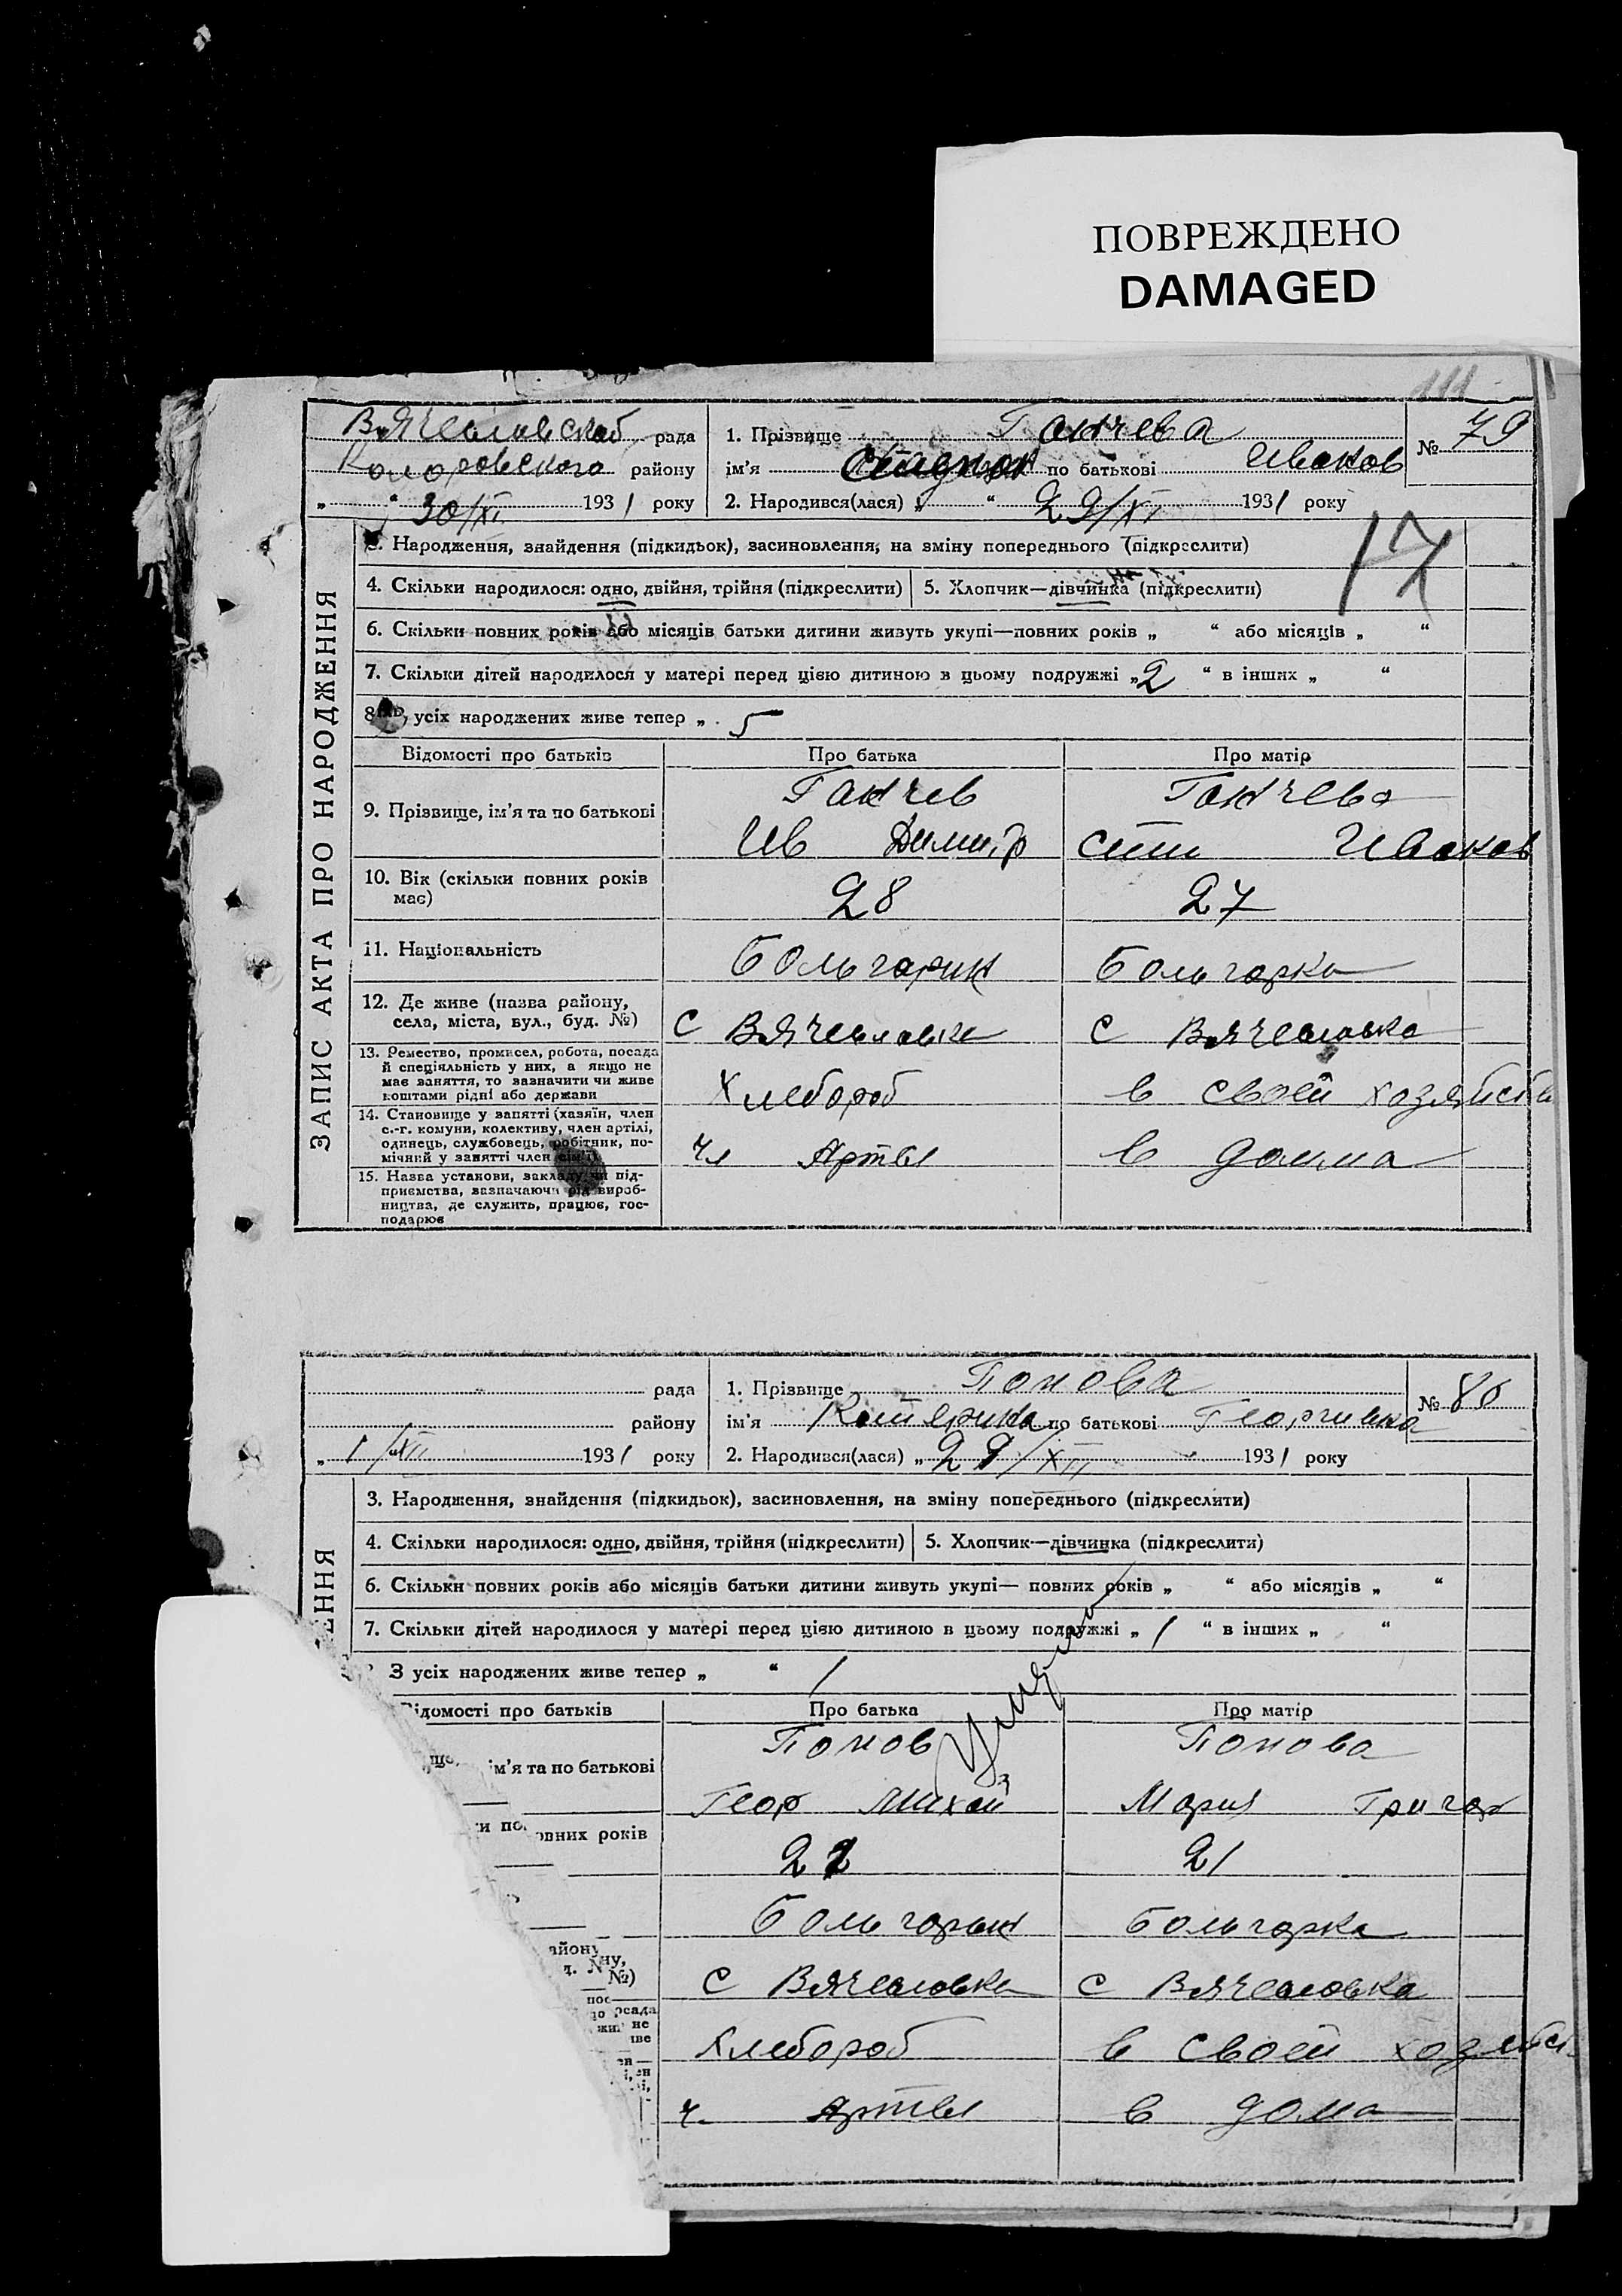 ПОВРЕЖДЕНО
DAMAGED
111
рада
району
30/XI 1931 року
1. Прізвище Ганчева
ім'я по батькові Иванов
2. Народився(лася) „ “ 29/XI 1931 року
№ 79
ЗАПИС АКТА ПРО НАРОДЖЕННЯ
3. Народження, знайдення (підкидьок), засиновлення, на зміну попереднього (підкреслити)
17
4. Скільки народилося: одно, двійня, трійня (підкреслити)
5. Хлопчик—дівчинка (підкреслити)
6. Скільки повних років або місяців батьки дитини живуть укупі—повних років „ “ або місяців „ “
7. Скільки дітей народилося у матері перед цією дитиною в цьому подружжі „2 “ в інших „ “
8 усіх народжених живе тепер „ 5
Відомості про батьків
Про батька
Про матір
9. Прізвище, ім'я та по батькові
Ганчев
Ив Димитр
Ганчева
Иванов
10. Вік (скільки повних років має)
28
27
11. Національність
Больгарин
Больгарка
12. Де живе (назва району, села, міста, вул., буд. №)
С Вячеславка
С Вячеславка
13. Ремество, промисел, робота, посада
й спеціяльність у них, а якщо не
має заняття, то зазначити чи живе
коштами рідні або держави
Хлебороб
в своей хозяйств
14. Становище у занятті (хазяїн, член
с.-г. комуни, колективу, член артілі,
одинець, службовець, робітник, по-
мічний у занятті член сім'ї)
чл Артел
в дома
15. Назва установи, закладу чи під-
приємства, зазначаючи рід вироб-
ництва, де служить, працює, гос-
подарює
рада
району
„ 1/XII 1931 року
1. Прізвище Попова
ім'я Катерина по батькові Георгиевна
2. Народився(лася) „ 29/XII 1931 року
№ 80
ЕННЯ
3. Народження, знайдення (підкидьок), засиновлення, на зміну попереднього (підкреслити)
4. Скільки народилося: одно, двійня, трійня (підкреслити)
5. Хлопчик—дівчинка (підкреслити)
6. Скільки повних років або місяців батьки дитини живуть укупі— повних років „ “ або місяців „ “
7. Скільки дітей народилося у матері перед цією дитиною в цьому подружжі „ 1 “ в інших „ “
З усіх народжених живе тепер „ “ 1
ідомості про батьків
Про батька
Про матір
ім'я та по батькові
Попов
Геор Михай
Попова
Мария Григор
овних років
22
21
Больгарин
Больгарка
С Вячеславка
С Вячеславка
Хлебороб
в своей хозяйст
ч. Артел
в дома